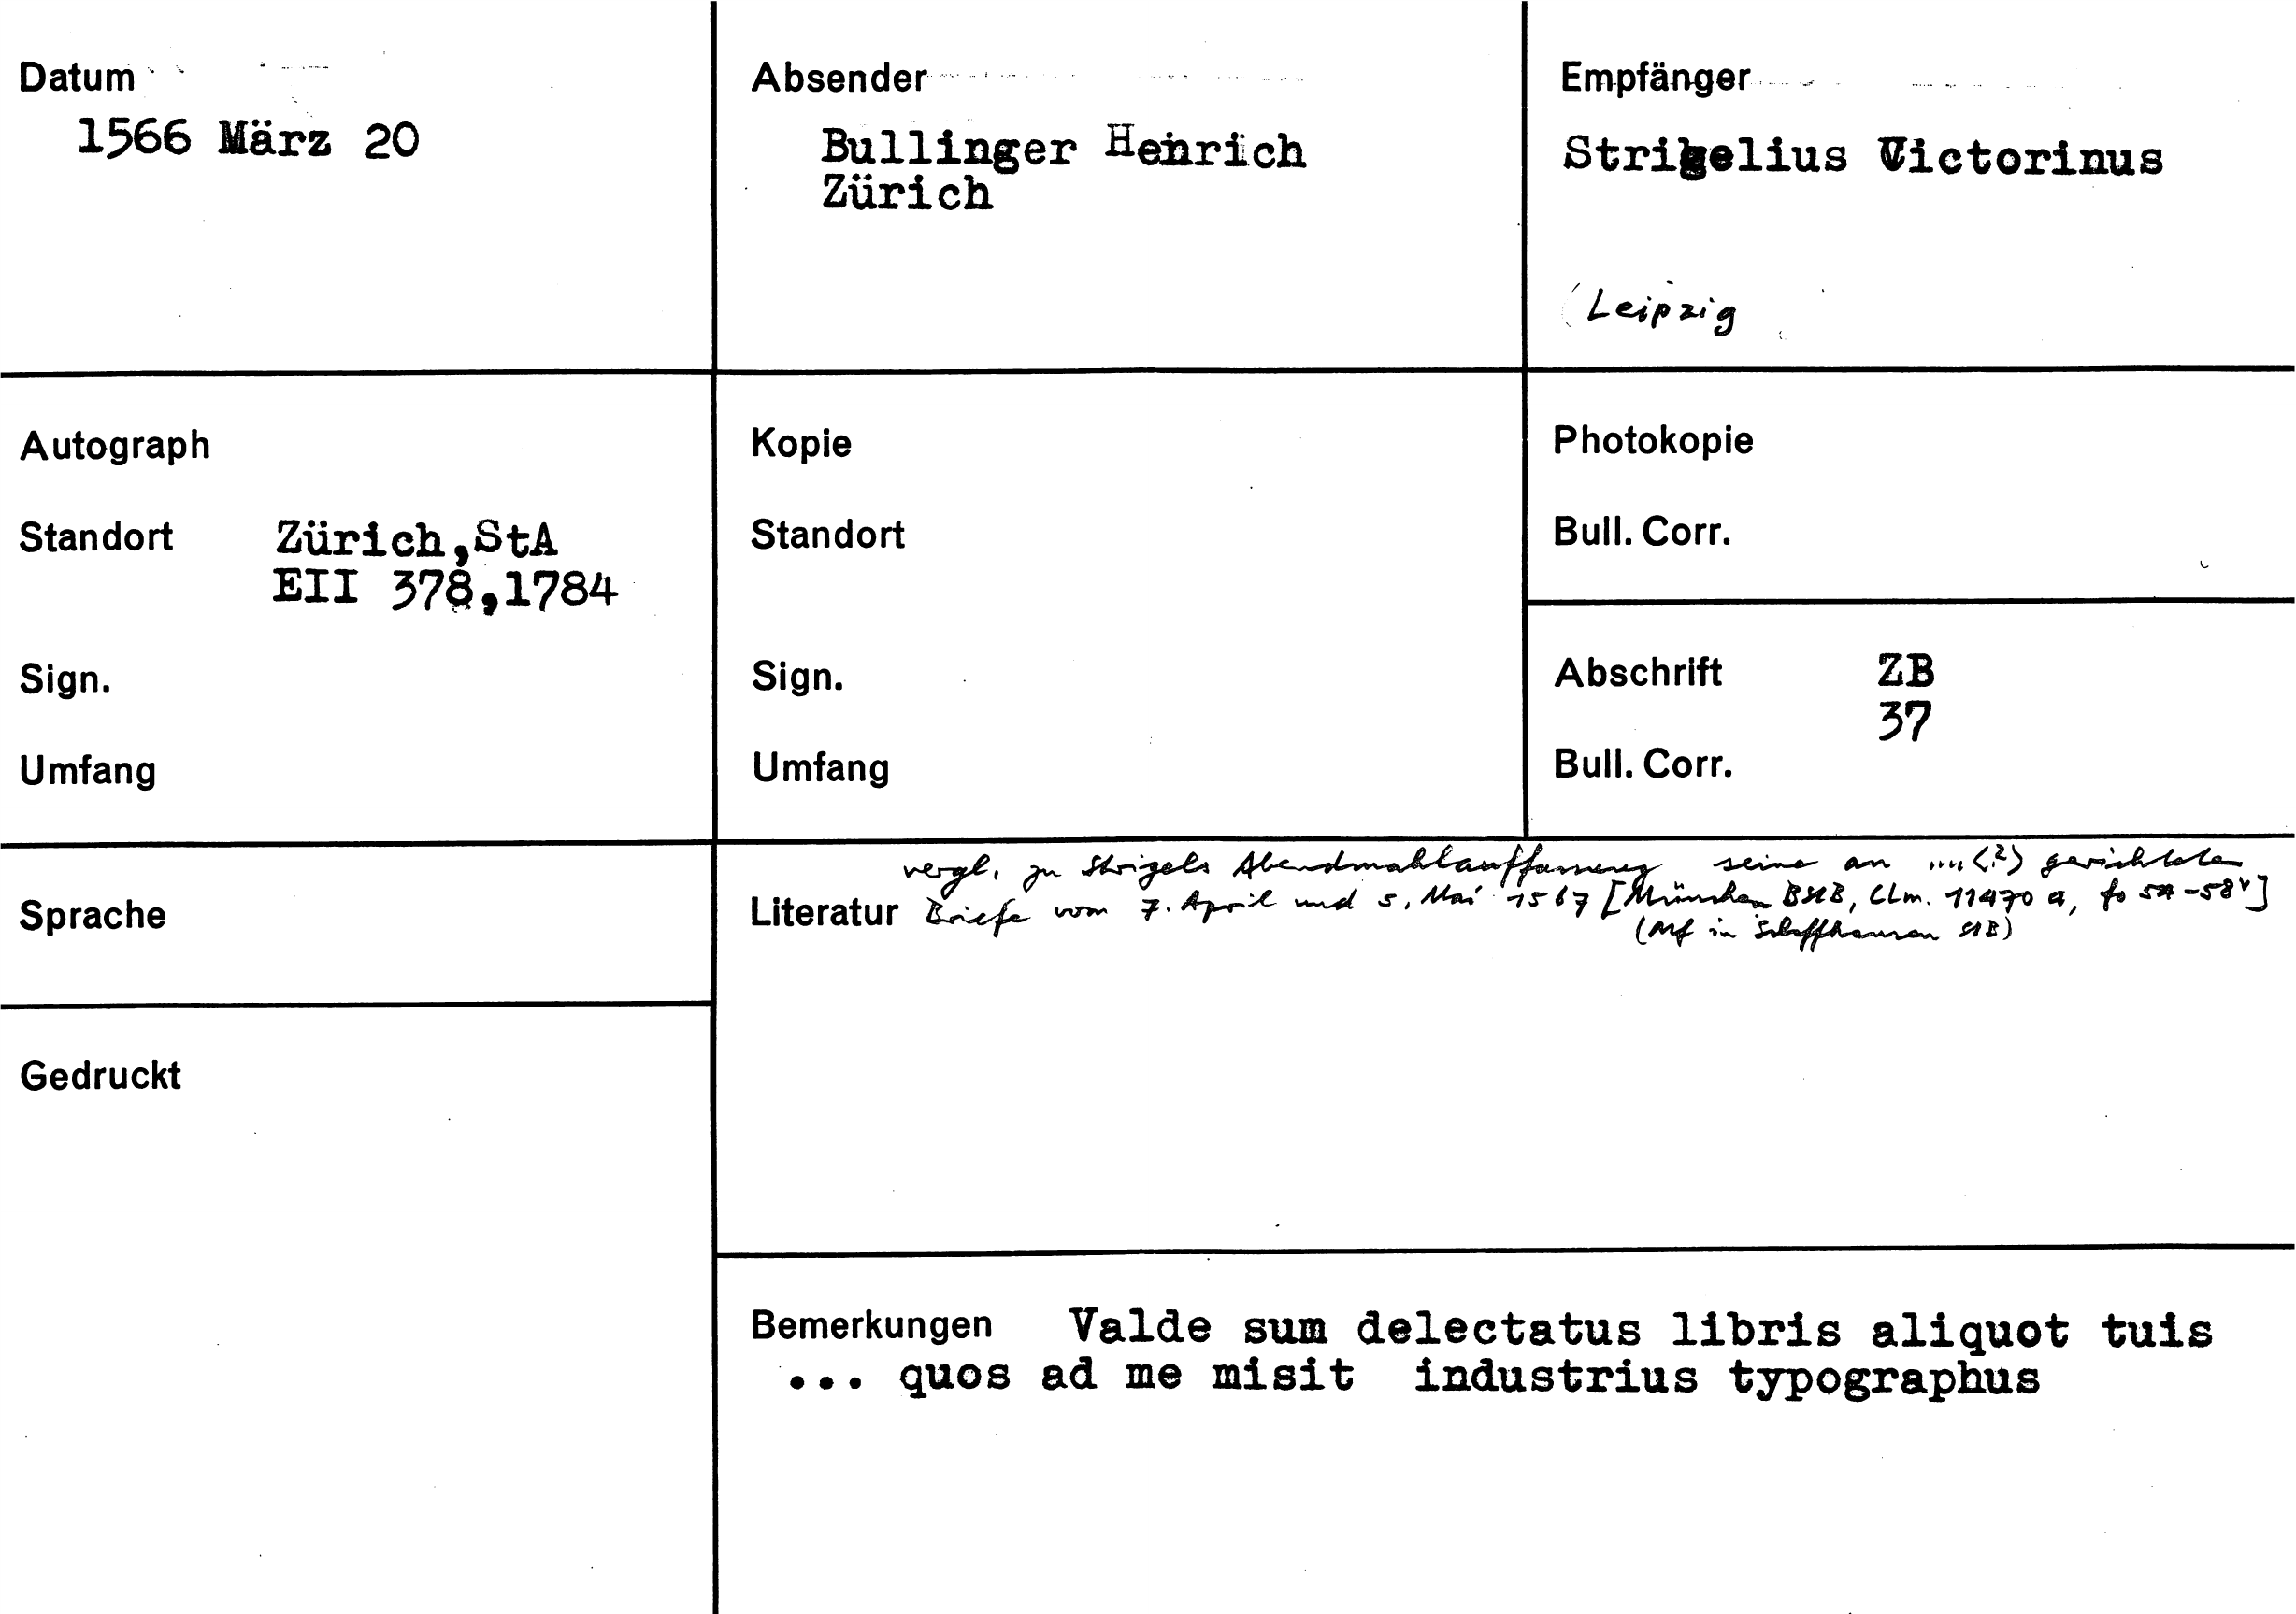 Datum
1566 März 20
Absender
Bullinger Heinrich
Zürich
Empfänger
Strigelius Victorinus
(Leipzig
Autograph
Standort Zürich,StA
EII 378,1784
Sign.
Umfang
Kopie
Standort
Sign.
Umfang
Photokopie
Bull. Corr.
Abschrift ZB
37
Bull. Corr.
Sprache
Gedruckt
vergl. zu Strigels Abendmahlauffassung seine an ....(?) gerichteten
Literatur Briefe vom 7. April und 5. Mai 1567 [München BStB, CLm. 11470 a, fo -58v]
(Mf in Schaffhausen StB)
Bemerkungen Valde sum delectatus libris aliquot tuis
... quos ad me misit industrius typographus